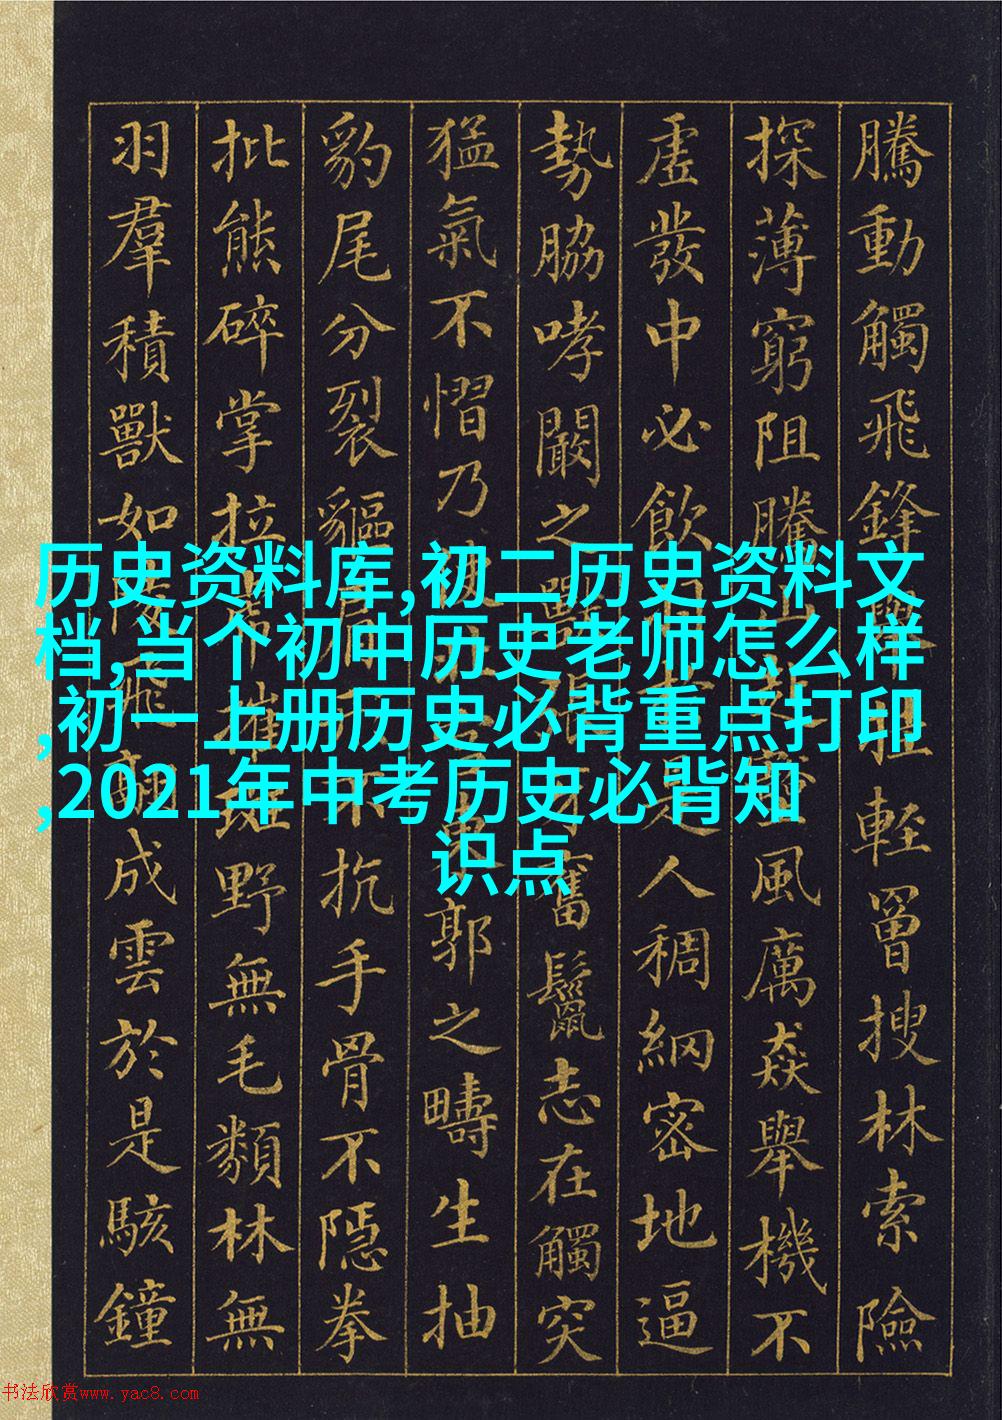 騰動觸飛鋒輕冒搜林索險
探薄窮阻騰風厲猋舉機不
虛發中必飲人稠網密地逼
勢脇哮闞之奮鬣志在觸突
猛氣不慴乃郭之疇生抽
豹尾分裂貙抗手骨不隱拳
批熊碎掌拉野無毛類林無
羽羣積獸如成雲於是駭鐘
历史资料库,初二历史资料文
档,当个初中历史老师怎么样
,初一上册历史必背重点打印
,2021年中考历史必背知
识点
书法欣赏www.yac8.com